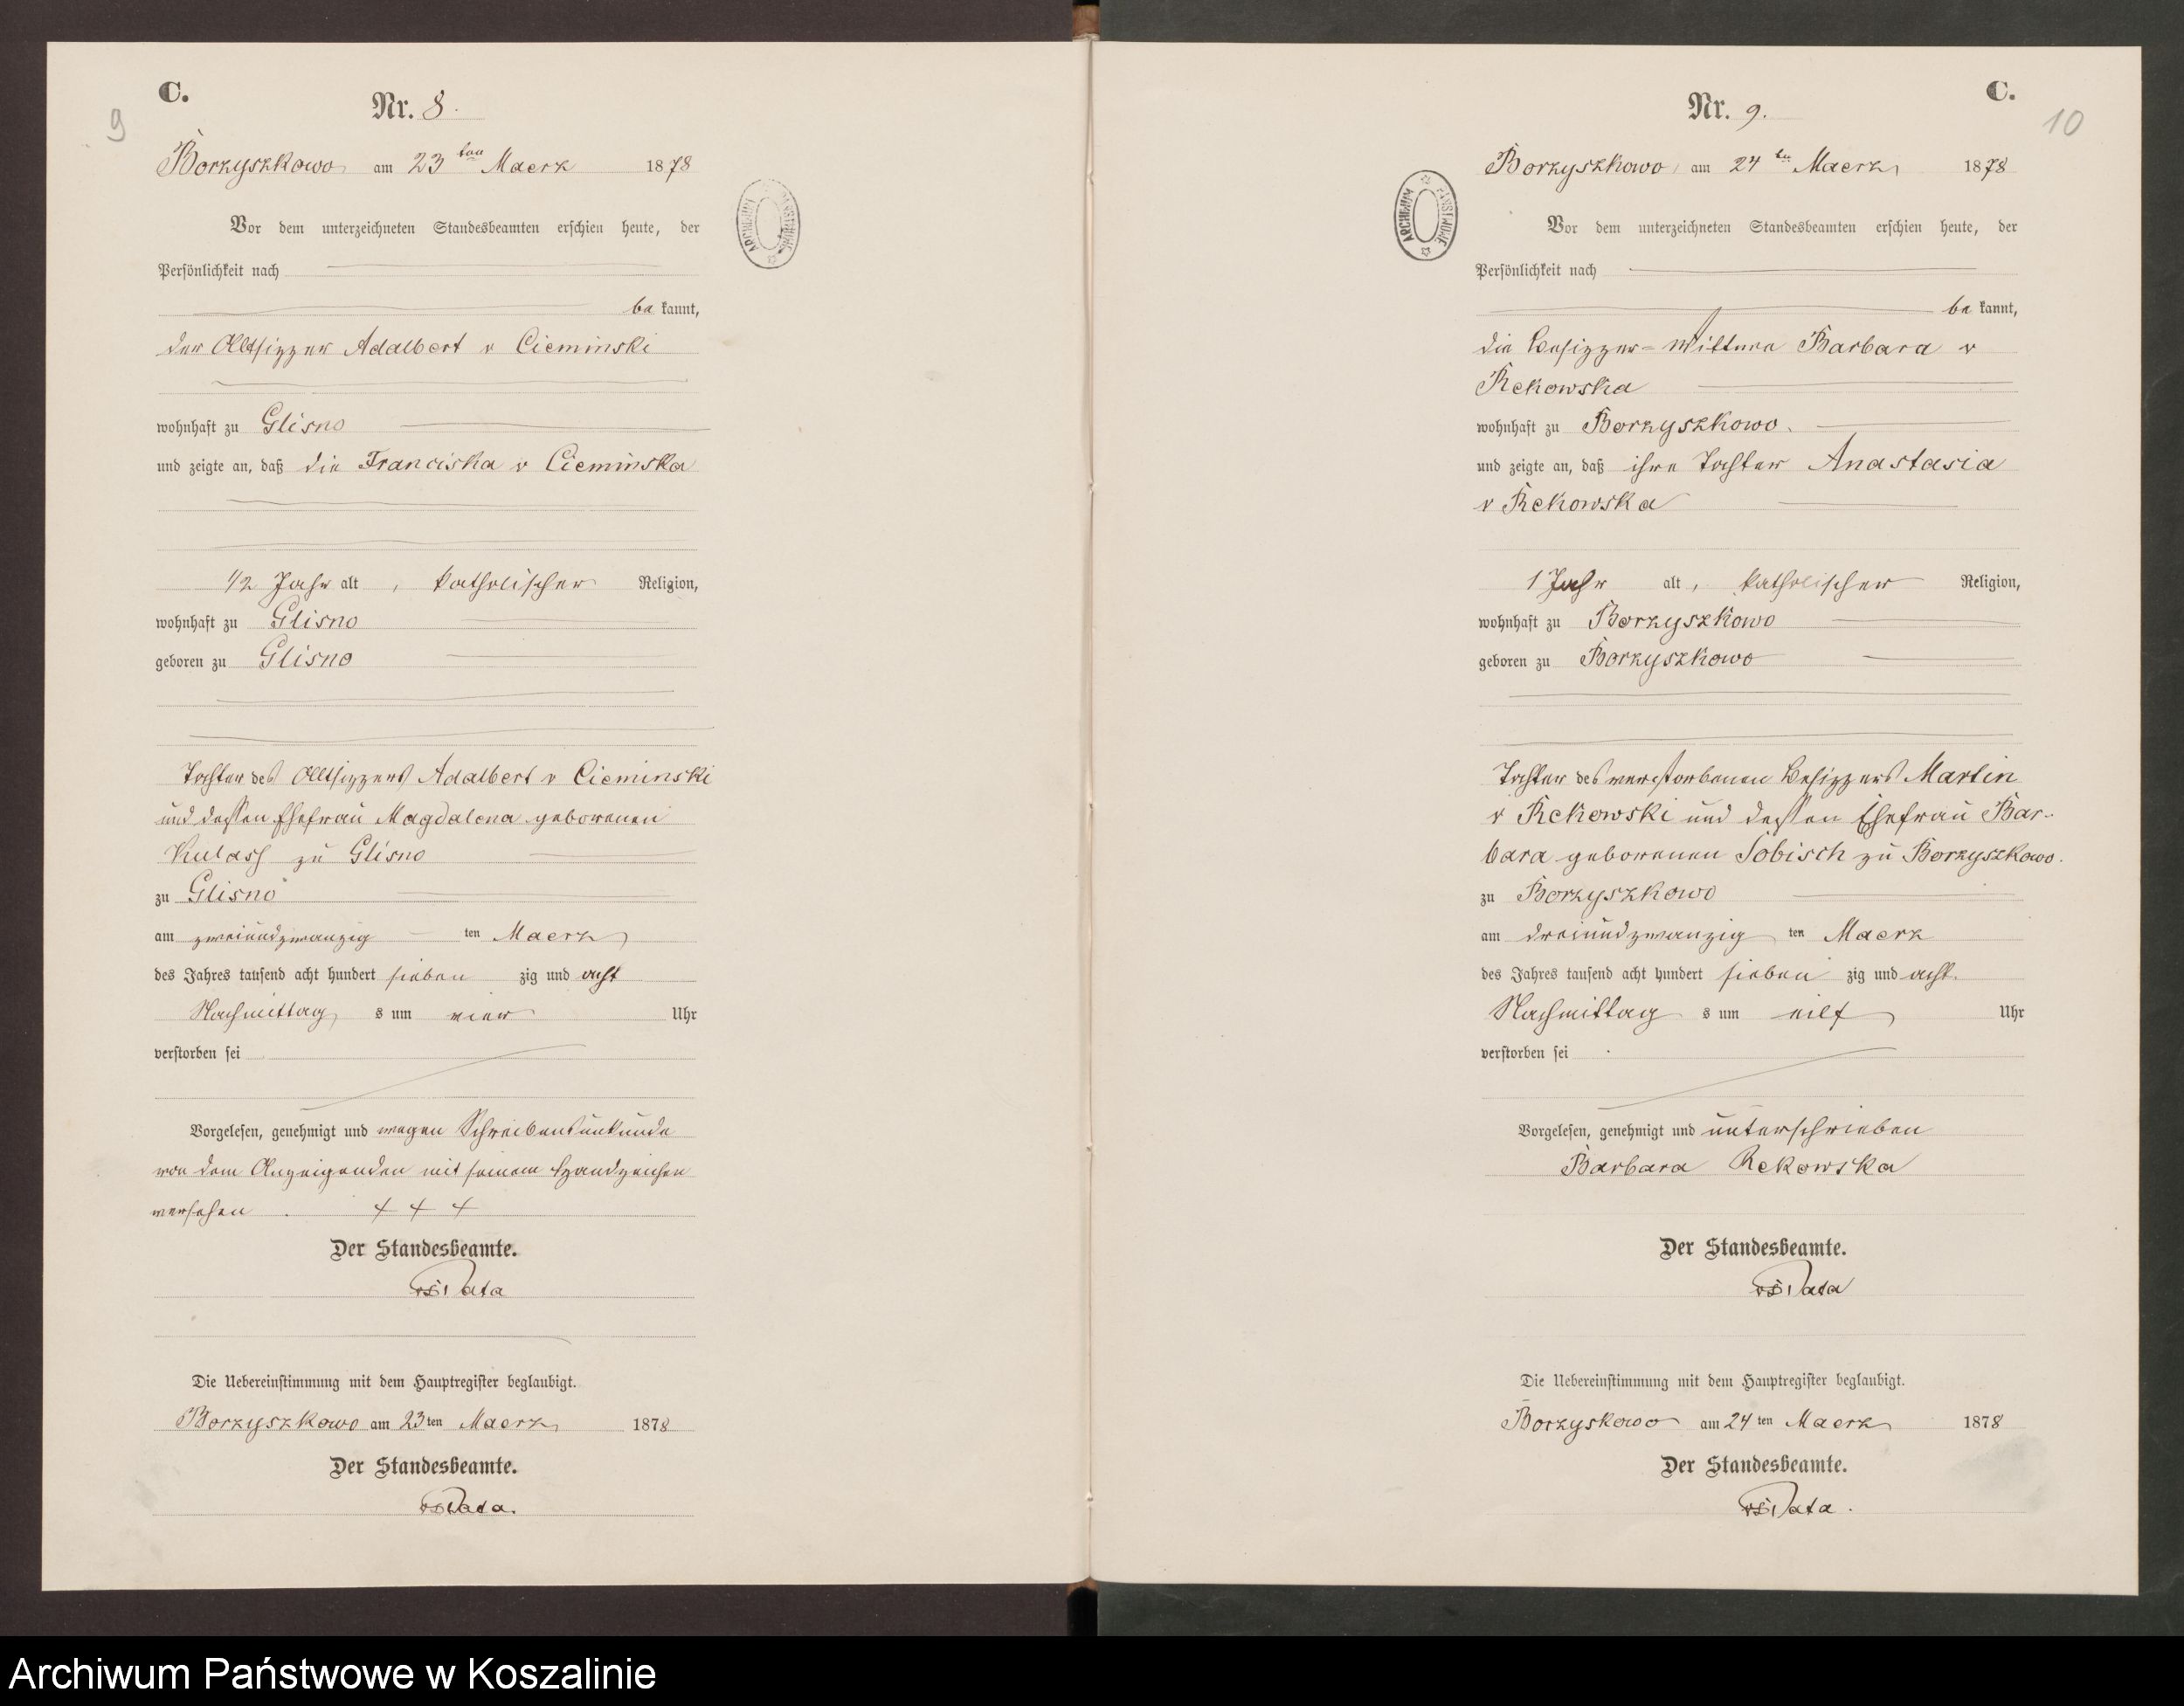 C.
9
Nr. 8.
Borzyszkowo am 23 ten Maerz 1878
ARCHIWUM PAŃSTWOWE
Vor dem unterzeichneten Standesbeamten erschien heute, der
Persönlichkeit nach
be kannt,
der Altsitzer Adalbert v Cieminski
wohnhaft zu Glisno
und zeigte an, daß die Franciska v Cieminska
1/2 Jahr alt, katholischer Religion,
wohnhaft zu Glisno
geboren zu Glisno
Tochter des Altsitzers Adalbert v Cieminski
und dessen Ehefrau Magdalena geborenen
Kulass zu Glisno
zu Glisno
am zweiundzwanzig ten Maerz
des Jahres tausend acht hundert sieben zig und acht
Nachmittag s um vier Uhr
verstorben sei
Vorgelesen, genehmigt und wegen Schreibensunkunde
von dem Anzeigenden mit seinem Handzeichen
versehen. + + +
Der Standesbeamte.
Die Uebereinstimmung mit dem Hauptregister beglaubigt.
Borzyszkowo am 23 ten Maerz 1878
Der Standesbeamte.
C.
10
Nr. 9.
Borzyszkowo, am 24 ten Maerz 1878
ARCHIWUM PAŃSTWOWE
Vor dem unterzeichneten Standesbeamten erschien heute, der
Persönlichkeit nach
be kannt,
die Besitzer=Wittwe Barbara v
Rekowska
wohnhaft zu Borzyszkowo.
und zeigte an, daß ihre Tochter Anastasia
v Rekowska
1 Jahr alt, katholischer Religion,
wohnhaft zu Borzyszkowo
geboren zu Borzyszkowo
Tochter des verstorbenen Besitzers Martin
v Rekowski und dessen Ehefrau Bar-
bara geborenen Sobisch zu Borzyszkowo.
zu Borzyszkowo
am dreiundzwanzig ten Maerz
des Jahres tausend acht hundert sieben zig und acht.
Nachmittag s um eilf Uhr
verstorben sei
Vorgelesen, genehmigt und unterschrieben
Barbara Rekowska
Der Standesbeamte.
Die Uebereinstimmung mit dem Hauptregister beglaubigt.
Borzyskowo am 24 ten Maerz 1878
Der Standesbeamte.
Archiwum Państwowe w Koszalinie